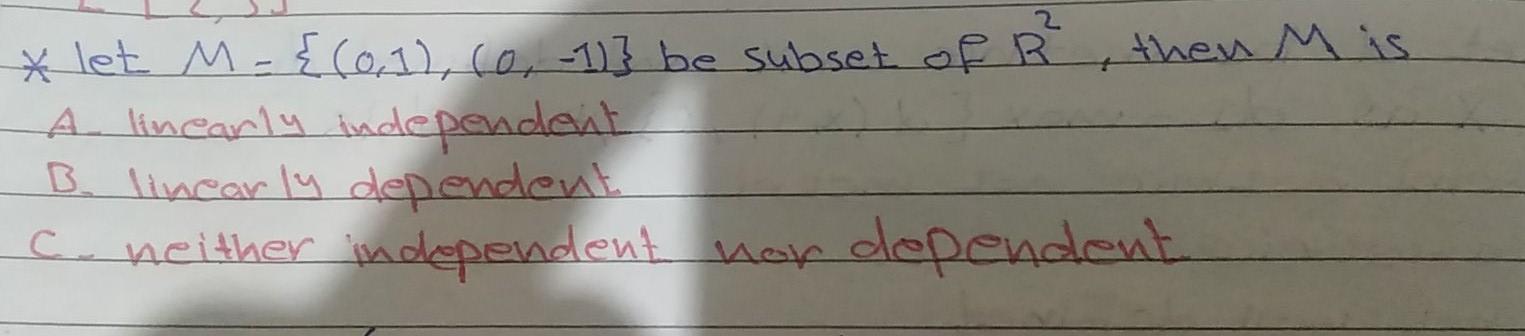 * let M = {(0,1), (0, -1)} be subset of R², then M is
A- linearly independent
B- linearly dependent
C- neither independent nor dependent